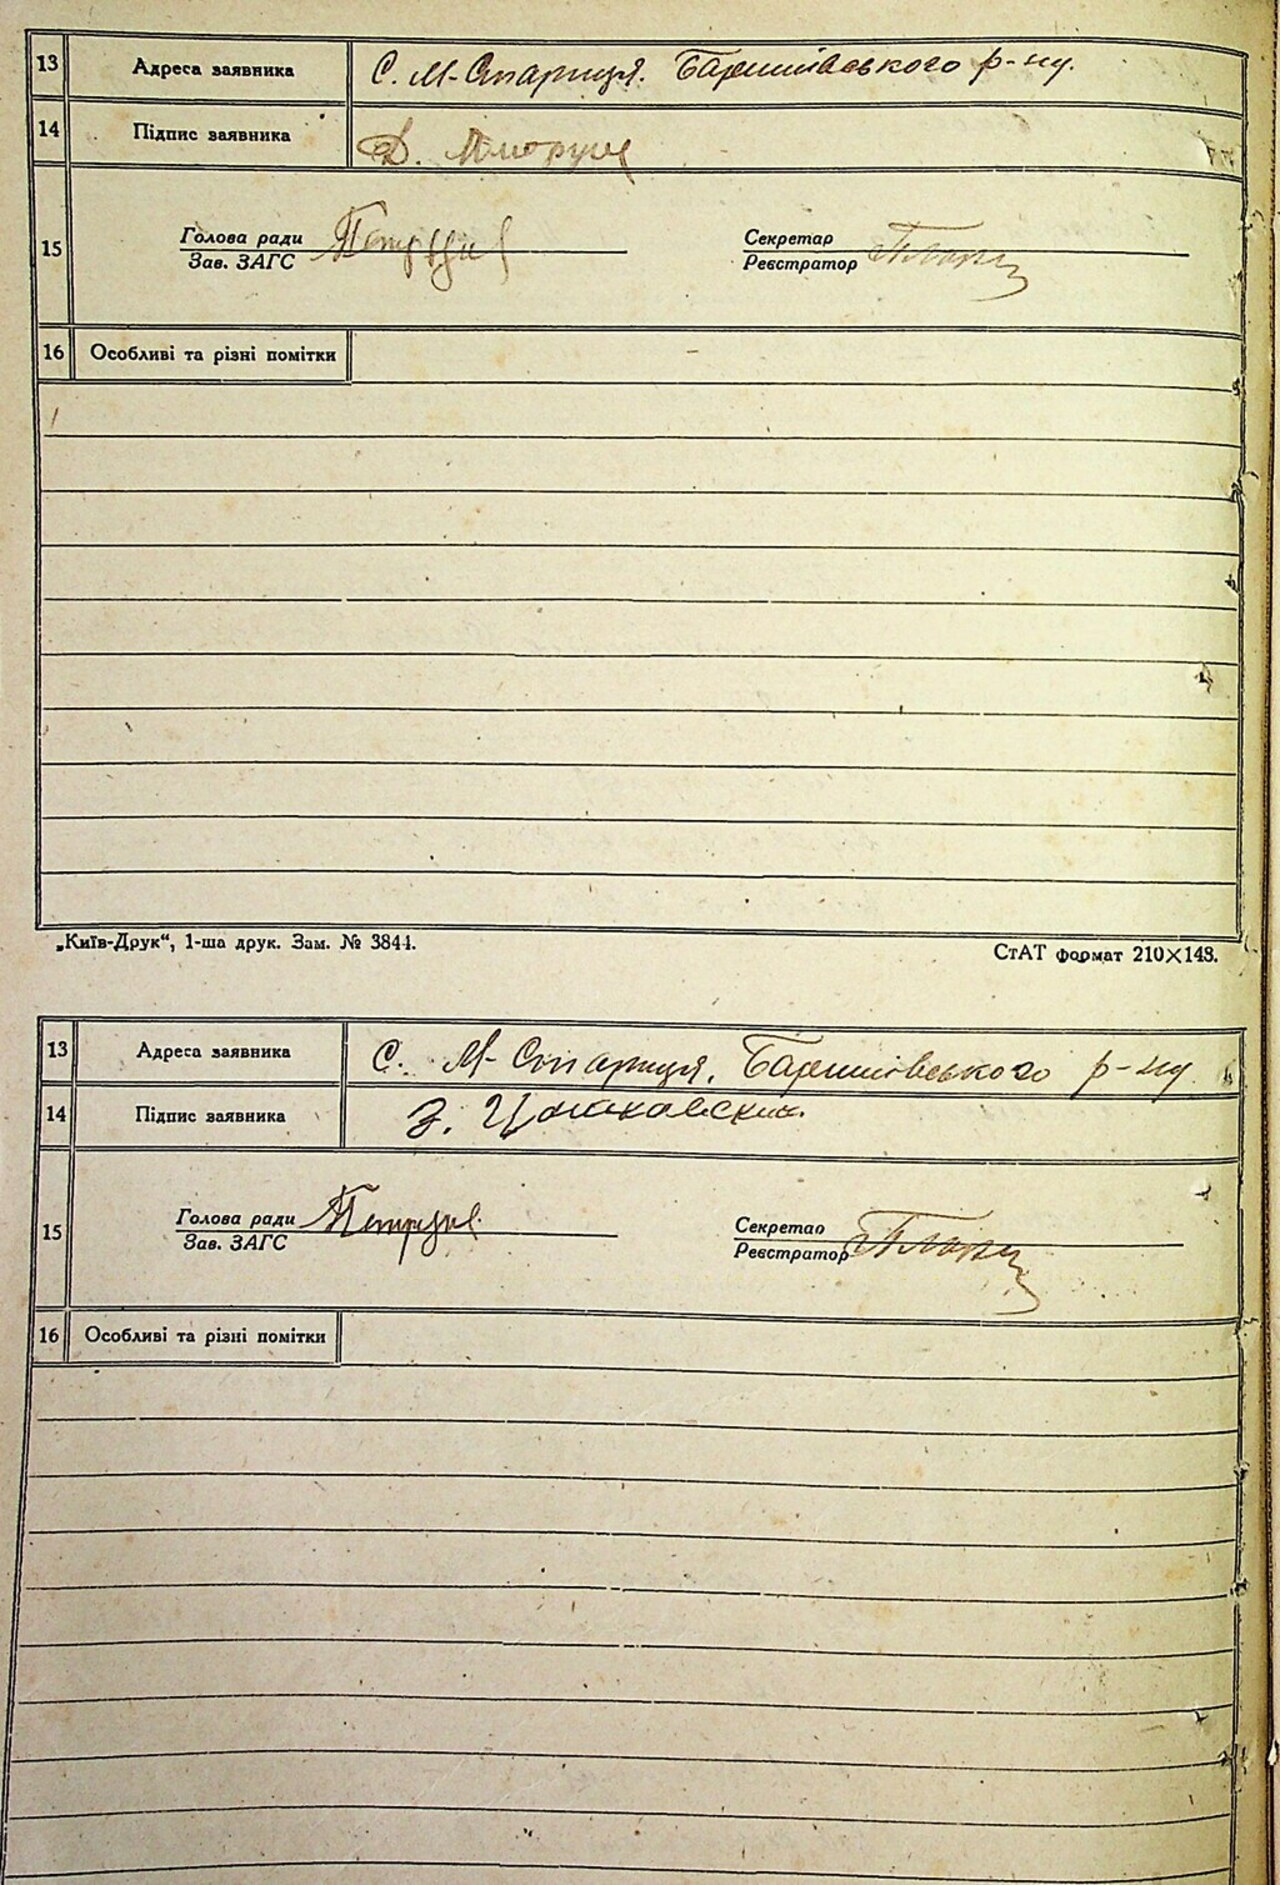 13 Адреса заявника С. М-Стариця. Баришівського р-ну.
14 Підпис заявника Д.
15 Голова ради Секретар
Зав. ЗАГС Реєстратор
16 Особливі та різні помітки
„Київ-Друк“, 1-ша друк. Зам. № 3844. СтАТ формат 210×148.
13 Адреса заявника С. М-Стариця. Баришівського р-ну
14 Підпис заявника З.
15 Голова ради Секретар
Зав. ЗАГС Реєстратор
16 Особливі та різні помітки